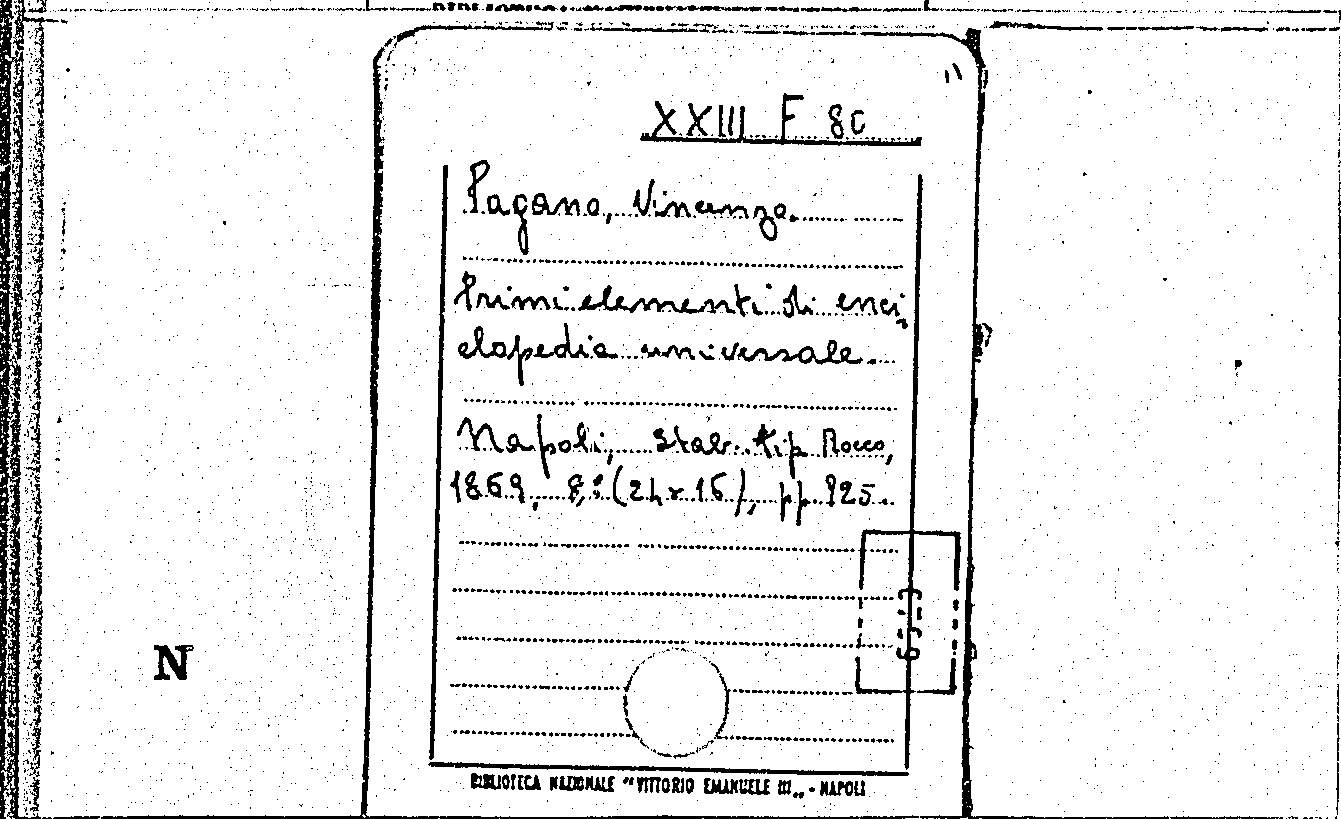 XXIII F 8C
Pagano, Vincenzo.
Primi elementi di enci,
clopedia universale.
Napoli, Stab. tip Rocco,
1869, 8,° (24 x 16), pp. 925.
N
BIBLIOTECA NAZIONALE "VITTORIO EMANUELE III„ - NAPOLI